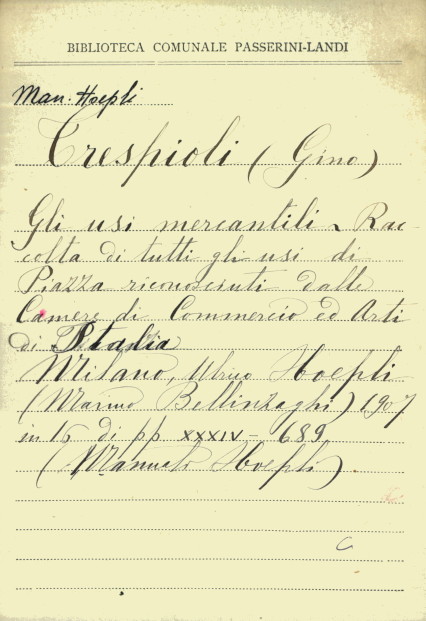 BIBLIOTECA COMUNALE PASSERINI-LANDI
Man. Hoepli
Trespioli (Gino)
Gli usi mercantili ~ Rac-
colta di tutti gli usi di
Piazza riconosciuti dalle
Camere di Commercio ed Arti
di Italia
Milano, Ulrico Hoepli
(Marino Bellinzaghi) 1907
in 16 di pp XXXIV - 689
(Manuale Hoepli)